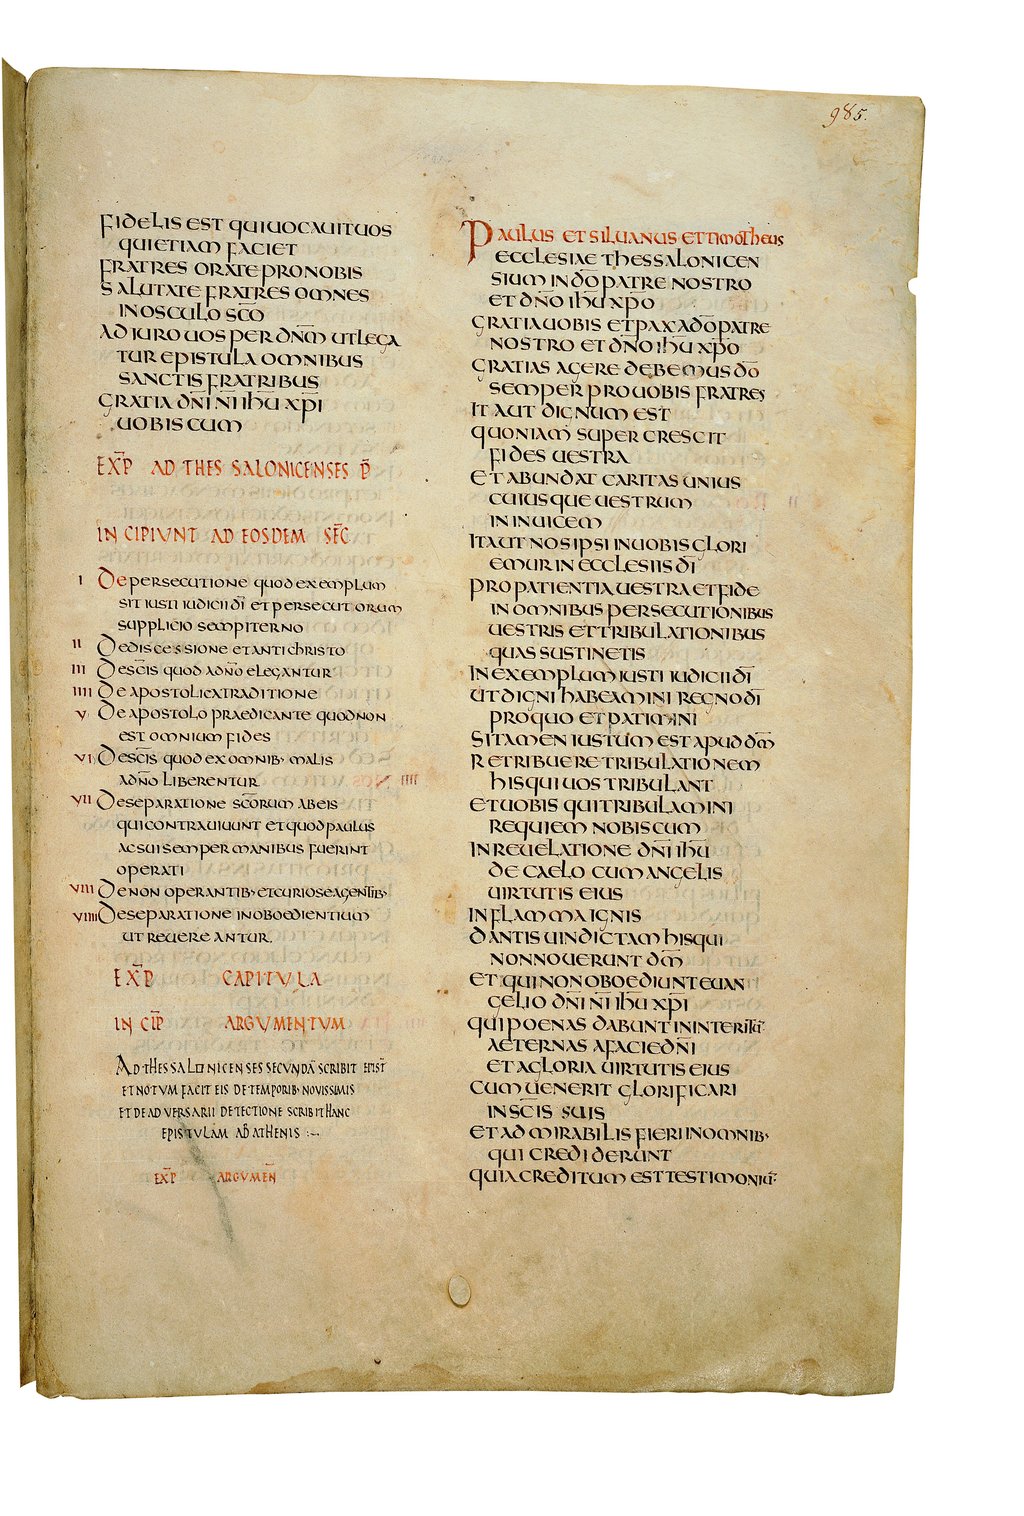 985.
FIDELIS EST QUI UOCAUIT UOS
QUI ETIAM FACIET
FRATRES ORATE PRO NOBIS
SALUTATE FRATRES OMNES
IN OSCULO SC̅O
ADIURO UOS PER DN̅M UT LEGA
TUR EPISTULA OMNIBUS
SANCTIS FRATRIBUS
GRATIA DN̅I N̅I IH̅U XP̅I
UOBISCUM
EXP̅ AD THESSALONICENSES P̅
INCIPIUNT AD EOSDEM SEC̅
I DE PERSECUTIONE QUOD EXEMPLUM
SIT IUSTI IUDICII DI̅ ET PERSECUTORUM
SUPPLICIO SEMPITERNO
II DE DISCESSIONE ET ANTICHRISTO
III DE SC̅IS QUOD A DN̅O ELEGANTUR
IIII DE APOSTOLICA TRADITIONE
V DE APOSTOLO PRAEDICANTE QUOD NON
EST OMNIUM FIDES
VI DE SC̅IS QUOD EX OMNIB· MALIS
A DN̅O LIBERENTUR
VII DE SEPARATIONE SC̅ORUM AB EIS
QUI CONTRA UIUUNT ET QUOD PAULUS
AC SUI SEMPER MANIBUS FUERINT
OPERATI
VIII DE NON OPERANTIB· ET CURIOSE AGENTIB·
VIIII DE SEPARATIONE INOBOEDIENTIUM
UT REUEREANTUR.
EXP̅ CAPITULA
INCIP̅ ARGUMENTUM
AD THESSALONICENSES SECUNDA̅ SCRIBIT EPIST
ET NOTUM FACIT EIS DE TEMPORIB· NOVISSIMIS
ET DE ADVERSARII DETECTIONE SCRIBIT HANC
EPISTULAM AB ATHENIS :~
EXP̅ ARGUMEN̅
PAULUS ET SILUANUS ET TIMOTHEUS
ECCLESIAE THESSALONICEN
SIUM IN DO̅ PATRE NOSTRO
ET DN̅O IH̅U XP̅O
GRATIA UOBIS ET PAX A DO̅ PATRE
NOSTRO ET DN̅O IH̅U XP̅O
GRATIAS AGERE DEBEMUS DO̅
SEMPER PRO UOBIS FRATRES
ITA UT DIGNUM EST
QUONIAM SUPERCRESCIT
FIDES UESTRA
ET ABUNDAT CARITAS UNIUS
CUIUSQUE UESTRUM
IN INUICEM
ITA UT NOS IPSI IN UOBIS GLORI
EMUR IN ECCLESIIS DI̅
PRO PATIENTIA UESTRA ET FIDE
IN OMNIBUS PERSECUTIONIBUS
UESTRIS ET TRIBULATIONIBUS
QUAS SUSTINETIS
IN EXEMPLUM IUSTI IUDICII DI̅
UT DIGNI HABEAMINI REGNO DI̅
PRO QUO ET PATIMINI
SI TAMEN IUSTUM EST APUD DM̅
RETRIBUERE TRIBULATIONEM
HIS QUI UOS TRIBULANT
ET UOBIS QUI TRIBULAMINI
REQUIEM NOBISCUM
IN REUELATIONE DN̅I IH̅U
DE CAELO CUM ANGELIS
UIRTUTIS EIUS
IN FLAMMA IGNIS
DANTIS UINDICTAM HIS QUI
NON NOUERUNT DM̅
ET QUI NON OBOEDIUNT EUAN
GELIO DN̅I N̅I IH̅U XP̅I
QUI POENAS DABUNT IN INTERITU̅·
AETERNAS A FACIE DN̅I
ET A GLORIA UIRTUTIS EIUS
CUM UENERIT GLORIFICARI
IN SC̅IS SUIS
ET ADMIRABILIS FIERI IN OMNIB·
QUI CREDIDERUNT
QUIA CREDITUM EST TESTIMONIU̅·